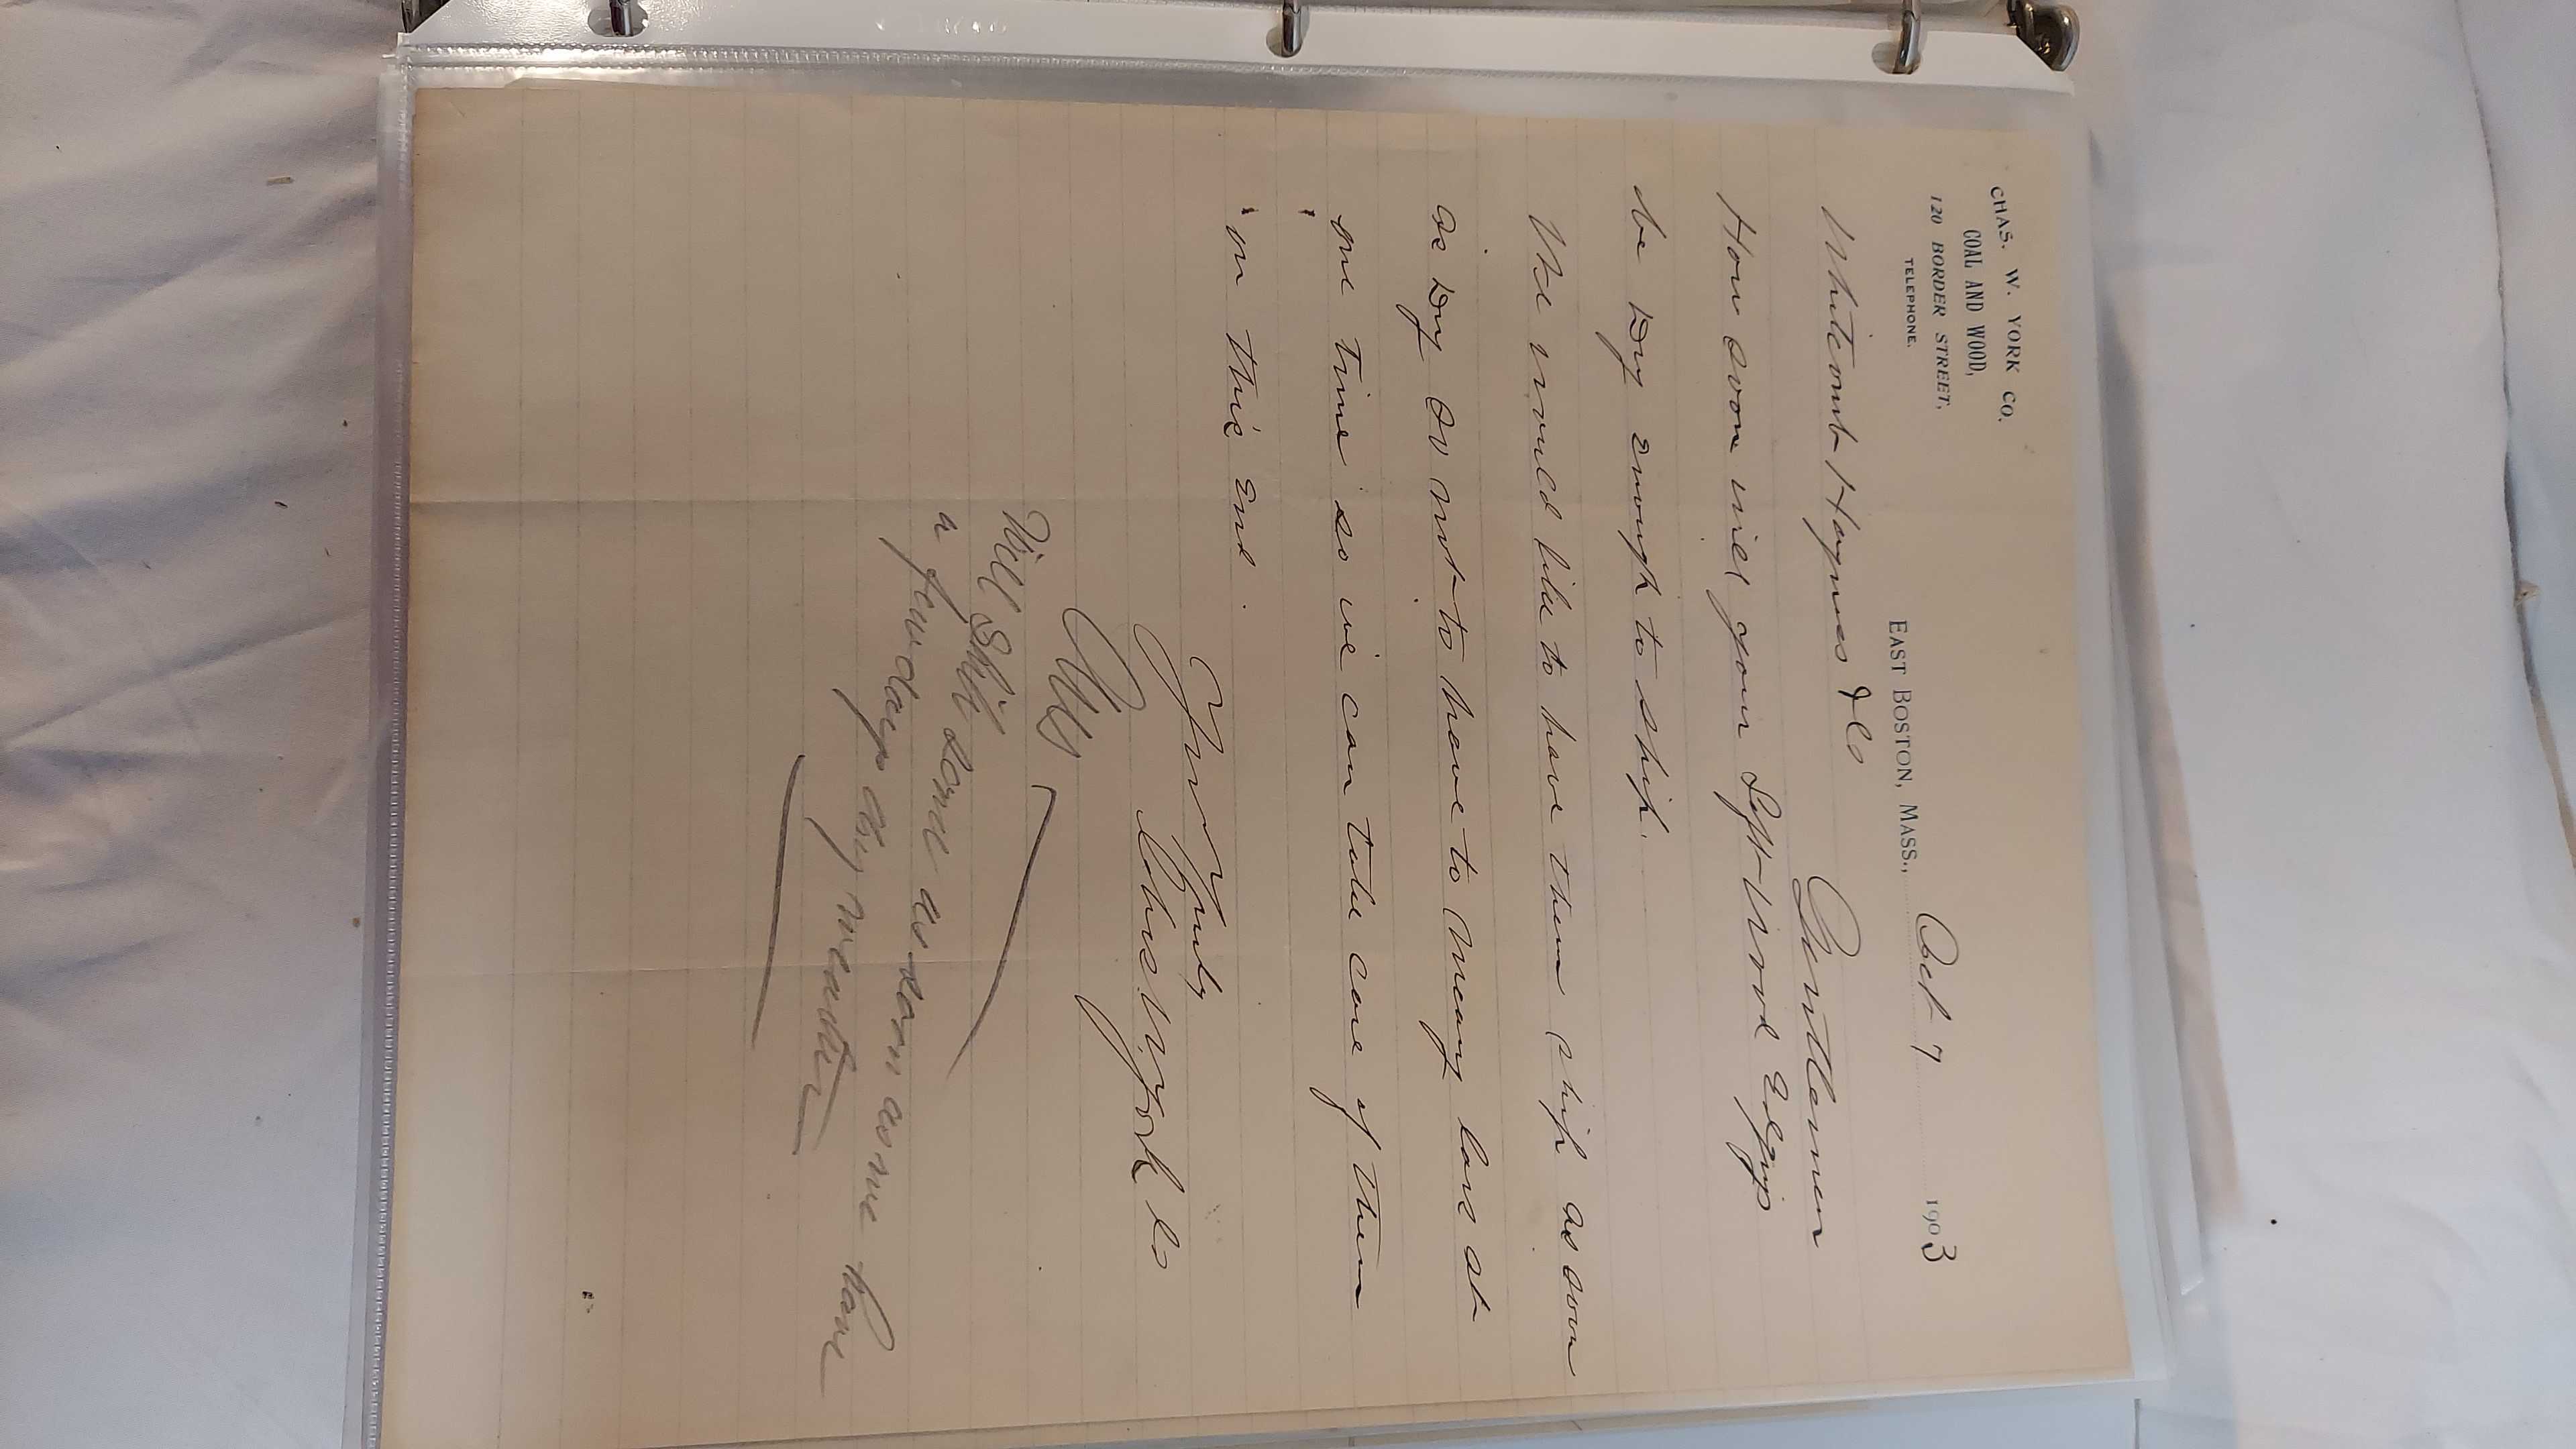 CHAS. W. YORK CO.
COAL AND WOOD,
120 BORDER STREET,
TELEPHONE.
EAST BOSTON, MASS., Oct 7 1903
Whitcomb Haynes & Co
Gentlemen
How soon will your Soft Wood Edgings
be Dry enough to ship.
We would like to have them ship as soon
as Dry so not to have to many cars at
one time so we can take care of them
on this end.
Yours Truly
Chas W York Co
Will Ship some as soon as we have
a few days dry weather